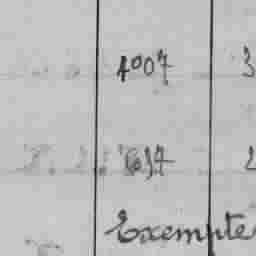 4007 3
637 2
Exempte